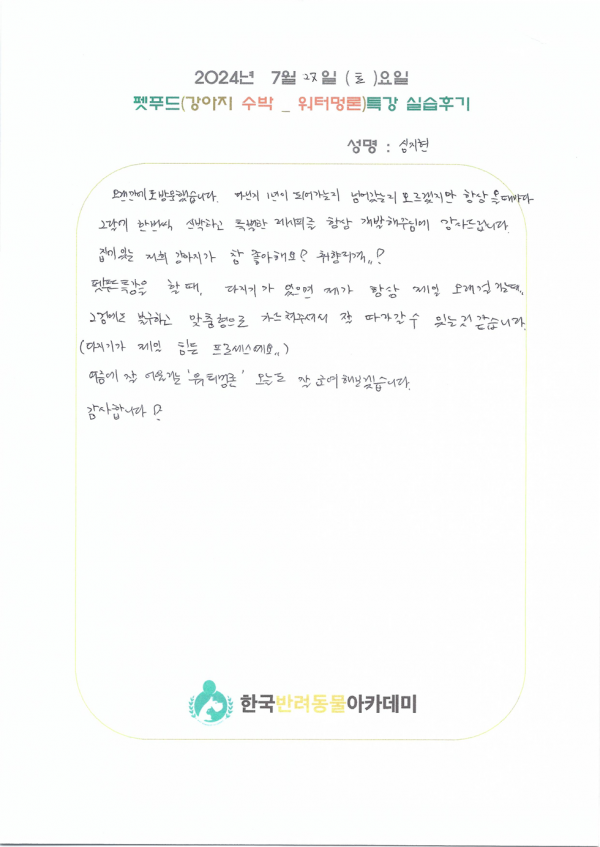 2024년 7월 27일 (토)요일
펫푸드(강아지 수박 _ 워터멍론)특강 실습후기
성명 : 심지현
오랜만에 또 방문했습니다. 하신지 1년이 되어가는지 넘어갔는지 모르겠지만 항상 올때마다
그달에 한번씩 신박하고 특별한 레시피를 항상 개발해주심에 감사드립니다.
집에있는 저희 강아지가 참 좋아해요? 취향저격,,?
펫푸드특강을 할 때, 다지기가 있으면 제가 항상 제일 오래걸리는데,,
그럼에도 불구하고 맞춤형으로 가르쳐주셔서 잘 따라갈 수 있는것 같습니다.
(다지기가 제일 힘든 프로세스예요,,)
여름에 잘 어울리는 '워터멍론' 오늘도 잘 급여해보겠습니다.
감사합니다
한국반려동물아카데미